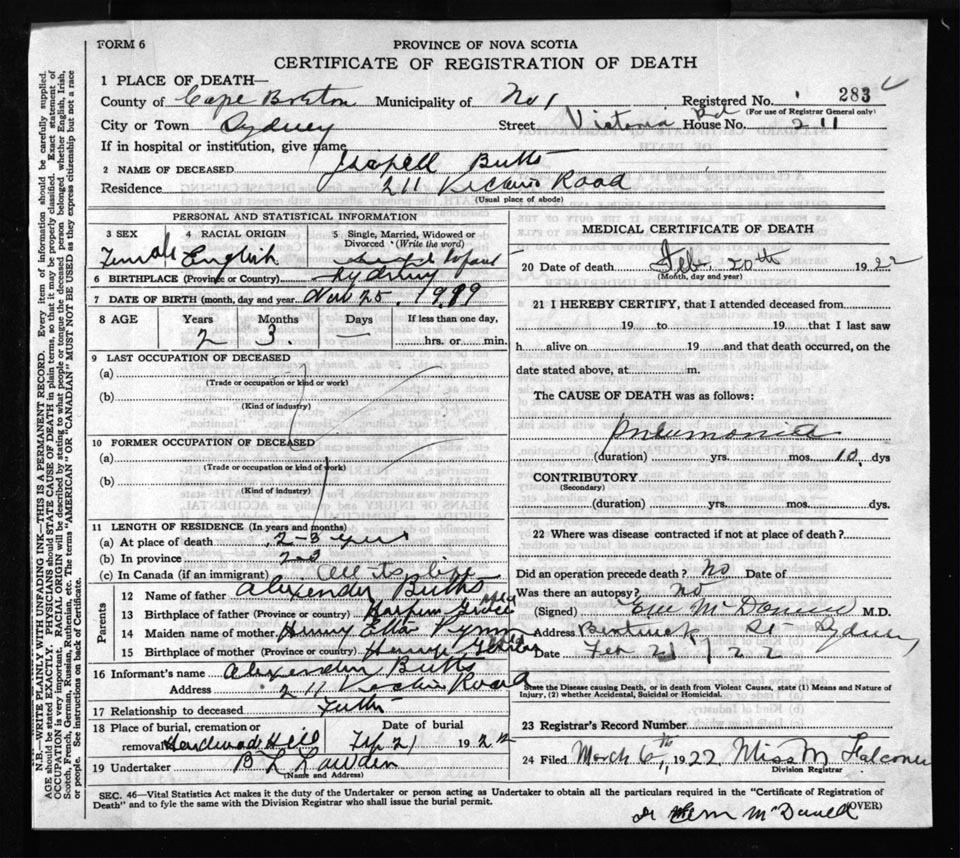 FORM 6
PROVINCE OF NOVA SCOTIA
CERTIFICATE OF REGISTRATION OF DEATH
N.B.—WRITE PLAINLY WITH UNFADING INK—THIS IS A PERMANENT RECORD. Every item of information should be carefully supplied.
AGE should be stated EXACTLY. PHYSICIANS should STATE CAUSE OF DEATH in plain terms, so that it may be properly classified. Exact statement of
OCCUPATION is very important. RACIAL ORIGIN will be described by stating to what people or tongue the deceased person belonged whether English, Irish,
Scotch, French, German, Russian, Ruthenian, etc. The terms "AMERICAN" or "CANADIAN" MUST NOT BE USED as they express citizenship but not a race
or people. See instructions on back of Certificate.
1 PLACE OF DEATH—
County of Cape Breton Municipality of No 1 Registered No. 283
(For use of Registrar General only)
City or Town Sydney Street Victoria Rd House No. 211
If in hospital or institution, give name
2 NAME OF DECEASED Butts
Residence 211 Road
(Usual place of abode)
PERSONAL AND STATISTICAL INFORMATION
3 SEX 4 RACIAL ORIGIN 5 Single, Married, Widowed or Divorced (Write the word)
Female English
6 BIRTHPLACE (Province or Country) Sydney
7 DATE OF BIRTH (month, day and year 25, 1919
8 AGE Years Months Days If less than one day,
2 3 hrs. or min.
9 LAST OCCUPATION OF DECEASED
(a)
(Trade or occupation or kind or work)
(b)
(Kind of industry)
10 FORMER OCCUPATION OF DECEASED
(a)
(Trade or occupation or kind of work)
(b)
(Kind of industry)
11 LENGTH OF RESIDENCE (In years and months)
(a) At place of death 2-3 years
(b) In province 2-3
(c) In Canada (if an immigrant) All its life
Parents
12 Name of father Alexender Butts
13 Birthplace of father (Province or country)
14 Maiden name of mother
15 Birthplace of mother (Province or country)
16 Informant's name Alexender Butts
Address 211 Road
17 Relationship to deceased
18 Place of burial, cremation or removal Hardwood Hill Date of burial Feb 21 1922
19 Undertaker
(Name and Address)
MEDICAL CERTIFICATE OF DEATH
20 Date of death Feb. 20th 1922
(Month, day and year)
21 I HEREBY CERTIFY, that I attended deceased from
19 to 19 that I last saw
h alive on 19 and that death occurred, on the
date stated above, at m.
The CAUSE OF DEATH was as follows:
Pneumonia
(duration) yrs. mos. 10 dys
CONTRIBUTORY
(Secondary)
(duration) yrs. mos. dys
22 Where was disease contracted if not at place of death?
Did an operation precede death? No Date of
Was there an autopsy? No
(Signed) M.D.
Address St Sydney
Date Feb 21 / 22
State the Disease causing Death, or in death from Violent Causes, state (1) Means and Nature of
Injury, (2) whether Accidental, Suicidal or Homicidal.
23 Registrar's Record Number
24 Filed March 6th, 1922 Miss M Falconer
Division Registrar
SEC. 46—Vital Statistics Act makes it the duty of the Undertaker or person acting as Undertaker to obtain all the particulars required in the "Certificate of Registration of
Death" and to fyle the same with the Division Registrar who shall issue the burial permit.
(OVER)